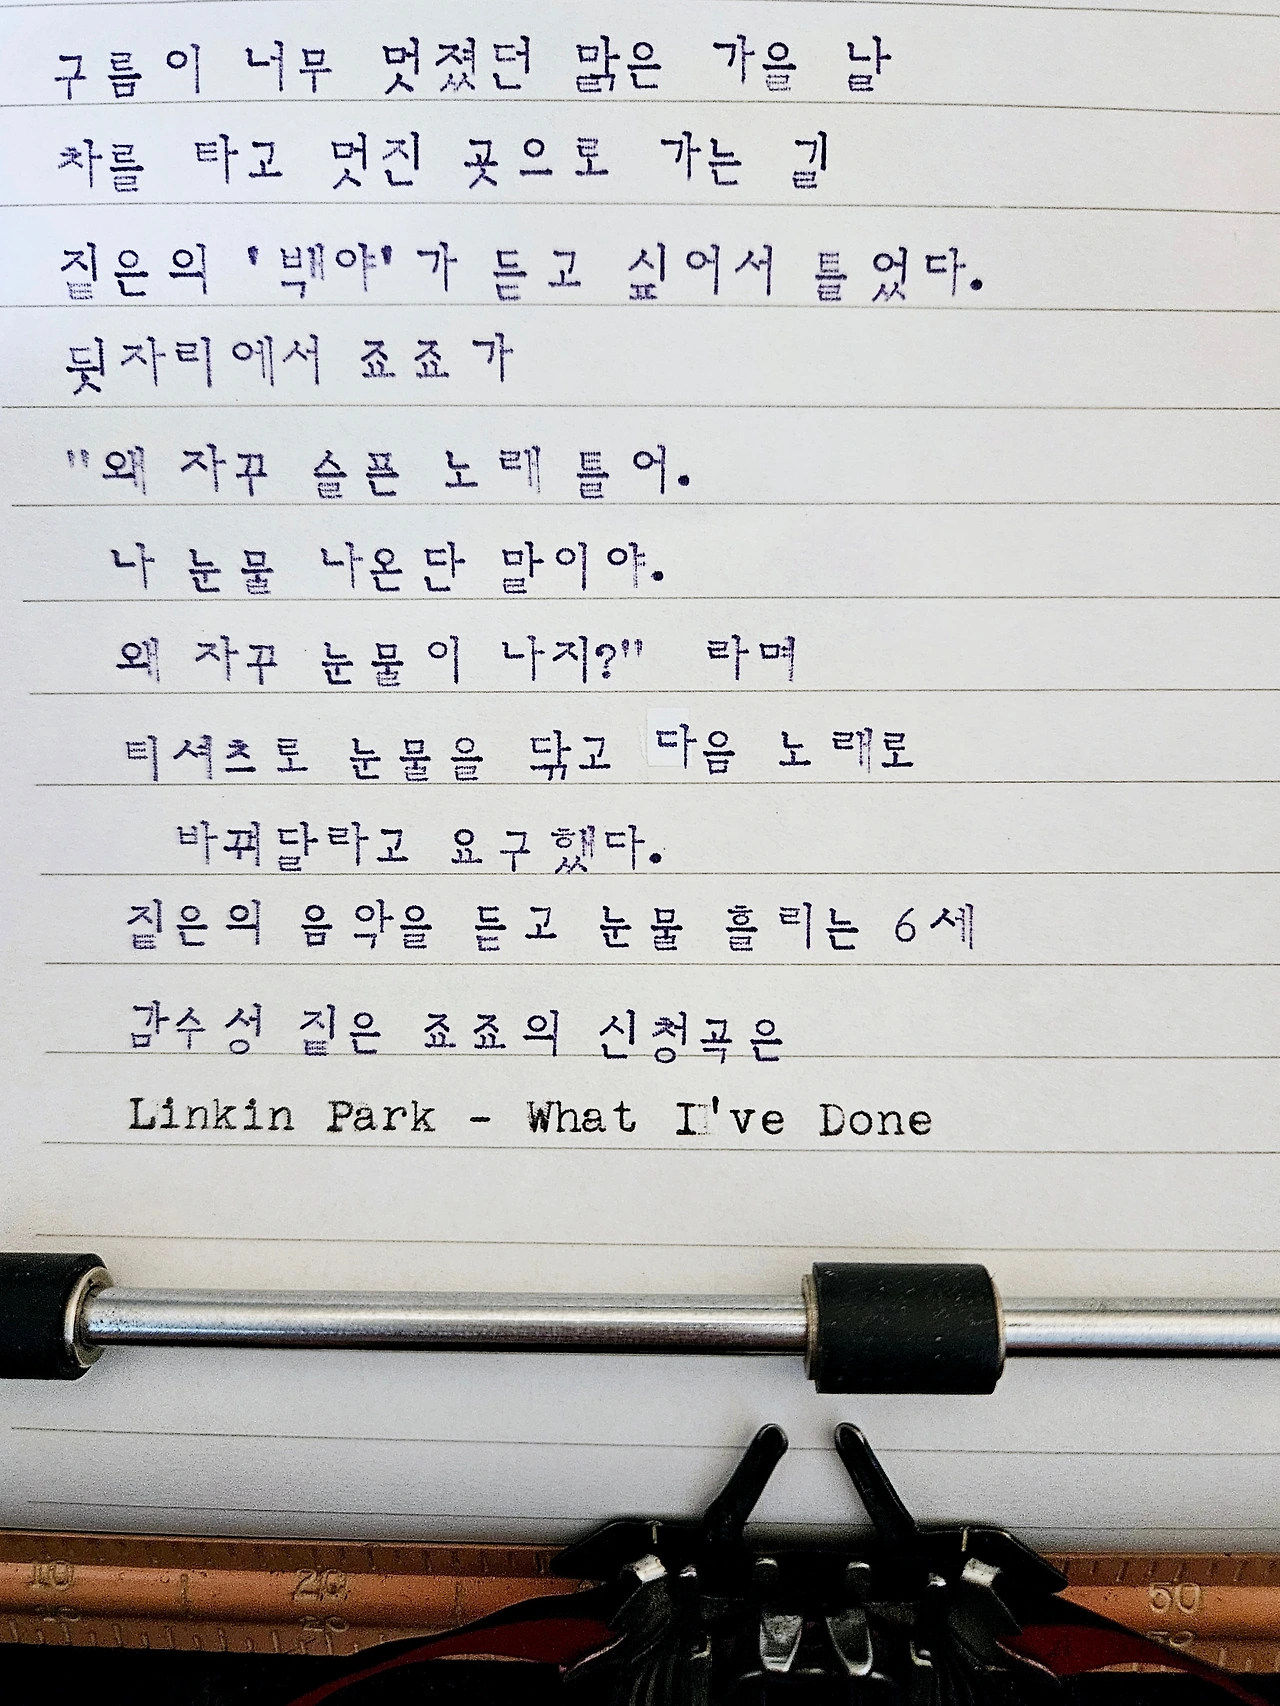 구름이 너무 멋졌던 맑은 가을 날
차를 타고 멋진 곳으로 가는 길
짙은의 '백야'가 듣고 싶어서 틀었다.
뒷자리에서 죠죠가
"왜 자꾸 슬픈 노래 틀어.
나 눈물 나온단 말이야.
왜 자꾸 눈물이 나지?" 라며
티셔츠로 눈물을 닦고 다음 노래로
바꿔달라고 요구했다.
짙은의 음악을 듣고 눈물 흘리는 6세
감수성 짙은 죠죠의 신청곡은
Linkin Park - What I've Done
10 20 50